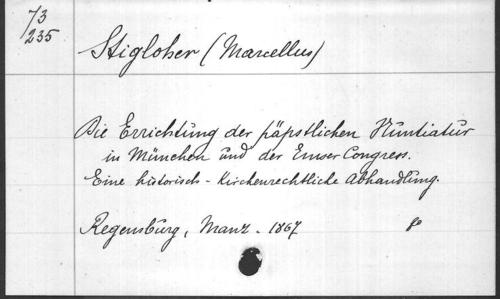 73
235
Stigloher (Marcellus)
Die Errichtung der päpstlichen Nuntiatur
in München und der Emser Congress.
Eine historisch-kirchenrechtliche Abhandlung.
Regensburg, Manz. 1867
8°